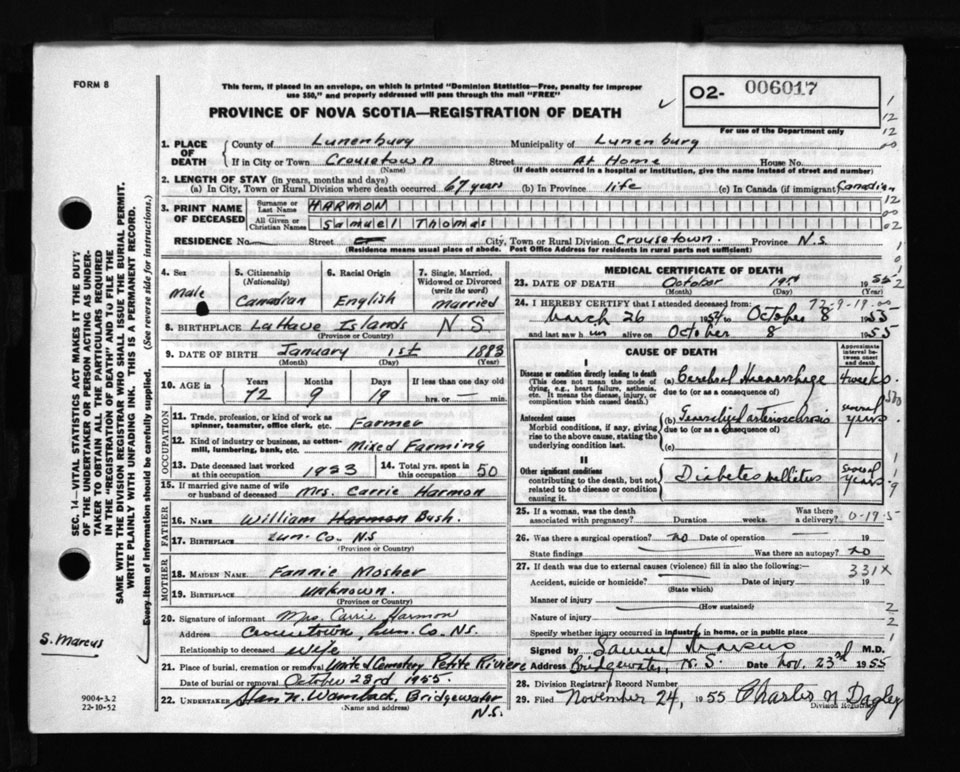 FORM 8
This form, if placed in an envelope, on which is printed "Dominion Statistics—Free, penalty for improper
use $50," and properly addressed will pass through the mail "FREE"
PROVINCE OF NOVA SCOTIA—REGISTRATION OF DEATH
O2- 006017
For use of the Department only
1. PLACE OF DEATH
County of Lunenburg Municipality of Lunenburg
If in City or Town Crousetown Street At Home House No.
(Name) (If death occurred in a hospital or institution, give the name instead of street and number)
2. LENGTH OF STAY (in years, months and days)
(a) In City, Town or Rural Division where death occurred 67 years (b) In Province life (c) In Canada (if immigrant) Canadian
3. PRINT NAME OF DECEASED
Surname or Last Name HARMON
All Given or Christian Names Samuel Thomas
RESIDENCE No. Street City, Town or Rural Division Crousetown. Province N.S.
(Residence means usual place of abode. Post Office Address for residents in rural parts not sufficient)
4. Sex male
5. Citizenship (Nationality) Canadian
6. Racial Origin English
7. Single, Married, Widowed or Divorced (write the word) married
8. BIRTHPLACE LaHave Islands N.S.
(Province or Country)
9. DATE OF BIRTH January 1st 1883
(Month) (Day) (Year)
10. AGE in Years 72 Months 9 Days 19 If less than one day old hrs. or — min.
OCCUPATION
11. Trade, profession, or kind of work as spinner, teamster, office clerk, etc. Farmer
12. Kind of industry or business, as cotton-mill, lumbering, bank, etc. Mixed Farming
13. Date deceased last worked at this occupation 1953
14. Total yrs. spent in this occupation 50
15. If married give name of wife or husband of deceased Mrs. Carrie Harmon
FATHER
16. NAME William Harmon Bush.
17. BIRTHPLACE Lun. Co. N.S
(Province or Country)
MOTHER
18. MAIDEN NAME Fannie Mosher
19. BIRTHPLACE unknown.
(Province or Country)
20. Signature of informant Mrs. Carrie Harmon
Address Crousetown, Lun. Co. N.S.
Relationship to deceased wife
21. Place of burial, cremation or removal United Cemetery Petite Riviere
Date of burial or removal October 23rd 1955.
22. UNDERTAKER Bridgewater N.S.
(Name and address)
MEDICAL CERTIFICATE OF DEATH
23. DATE OF DEATH October 19th 1955
(Month) (Day) (Year)
24. I HEREBY CERTIFY that I attended deceased from: 72-9-19.00
March 26 1954 to October 8 1955
and last saw him alive on October 8 1955
CAUSE OF DEATH
Approximate interval between onset and death
I
Disease or condition directly leading to death
(This does not mean the mode of dying, e.g., heart failure, asthenia, etc. It means the disease, injury, or complication which caused death.)
(a) Cerebral Hemorrhage 4 weeks.
due to (or as a consequence of)
Antecedent causes
Morbid conditions, if any, giving rise to the above cause, stating the underlying condition last.
(b) Generalized arteriosclerosis several years.
due to (or as a consequence of)
(c)
II
Other significant conditions
contributing to the death, but not related to the disease or condition causing it.
Diabetes mellitus several years.
25. If a woman, was the death associated with pregnancy? Duration weeks. Was there a delivery? 0-19-5
26. Was there a surgical operation? no Date of operation 19
State findings Was there an autopsy? no
27. If death was due to external causes (violence) fill in also the following:— 331X
Accident, suicide or homicide? Date of injury 19
(State which)
Manner of injury
(How sustained)
Nature of injury
Specify whether injury occurred in industry, in home, or in public place
Signed by Samuel Marcus M.D.
Address Bridgewater, N.S. Date Nov. 23rd 1955
28. Division Registrar's Record Number
29. Filed November 24, 1955 Charles N Dagley
Division Registrar
SEC. 14—VITAL STATISTICS ACT MAKES IT THE DUTY
OF THE UNDERTAKER OR PERSON ACTING AS UNDER-
TAKER TO OBTAIN ALL THE PARTICULARS REQUIRED
IN THE "REGISTRATION OF DEATH" AND TO FILE THE
SAME WITH THE DIVISION REGISTRAR WHO SHALL ISSUE THE BURIAL PERMIT.
WRITE PLAINLY WITH UNFADING INK. THIS IS A PERMANENT RECORD.
Every item of information should be carefully supplied. (See reverse side for instructions.)
S. Marcus
9004-3.2
22-10-52